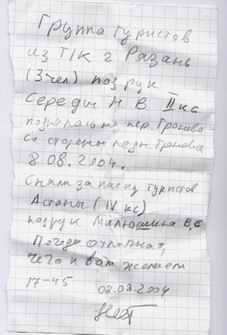 Группа туристов
из Т/К г Рязань
(3 чел) под рук
Середы Н В II кс
поднялась на пер. Тронова
со стороны ледн. Тронова
8.08.2004.
Сняли записку туристов
Астаны (IV кс)
под рук Малюшина В,С
Погода отличная,
чего и вам желаем
17-45
02.03.2004